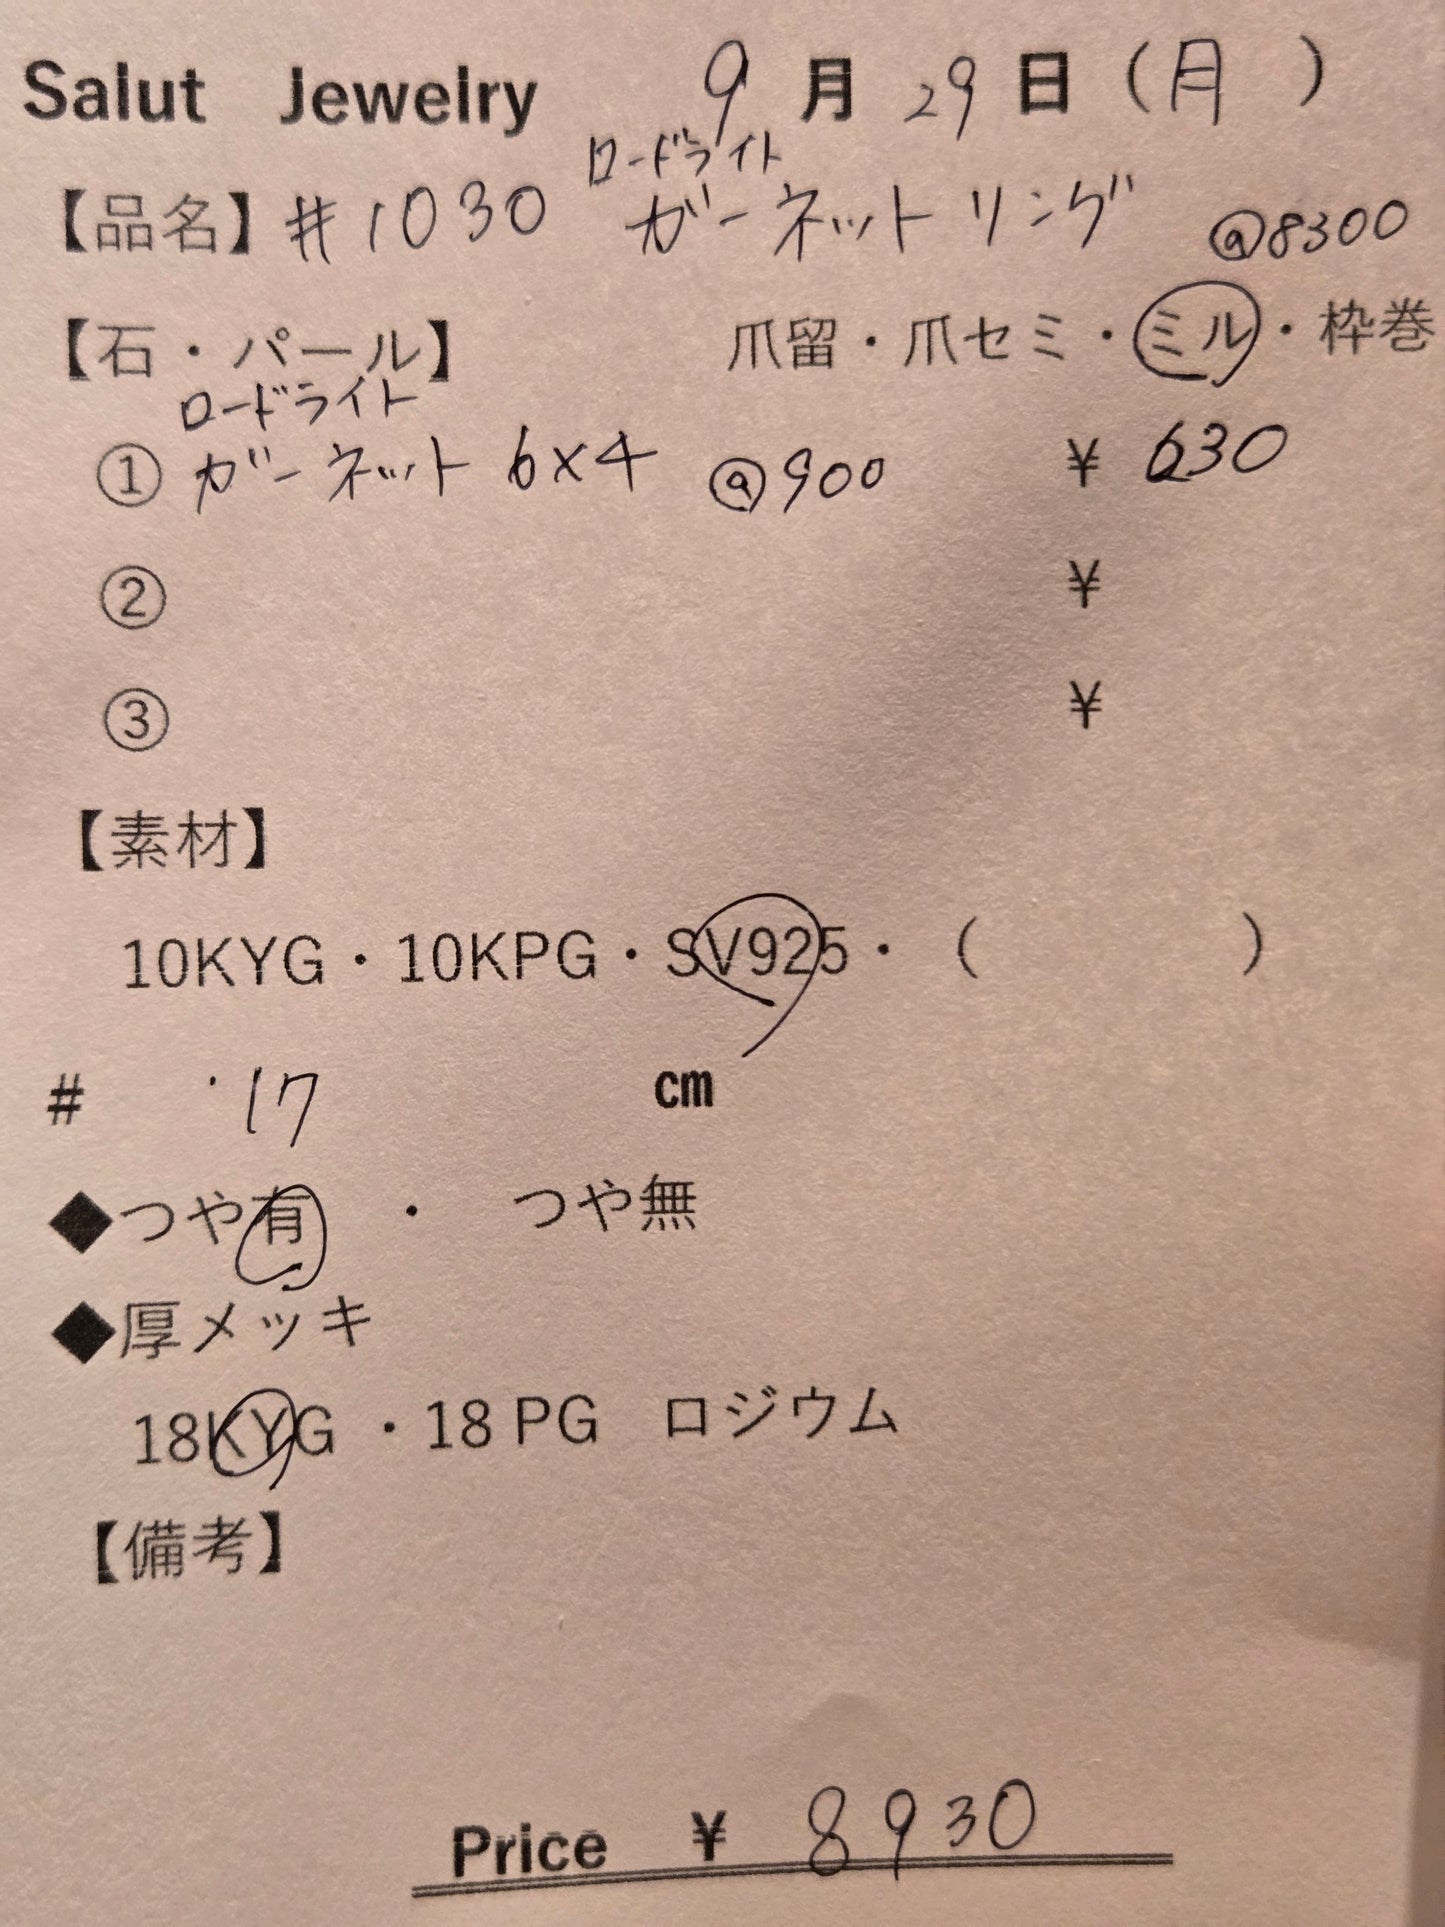 Salut Jewelry 9月29日(月)
ロードライト
【品名】#1030 ガーネットリング @8300
【石・パール】 爪留・爪セミ・ミル・枠巻
ロードライト
① ガーネット 6×4 @900 ¥630
② ¥
③ ¥
【素材】
10KYG・10KPG・SV925・( )
# 17 cm
◆つや有 ・ つや無
◆厚メッキ
18KYG ・18 PG ロジウム
【備考】
Price ¥ 8930